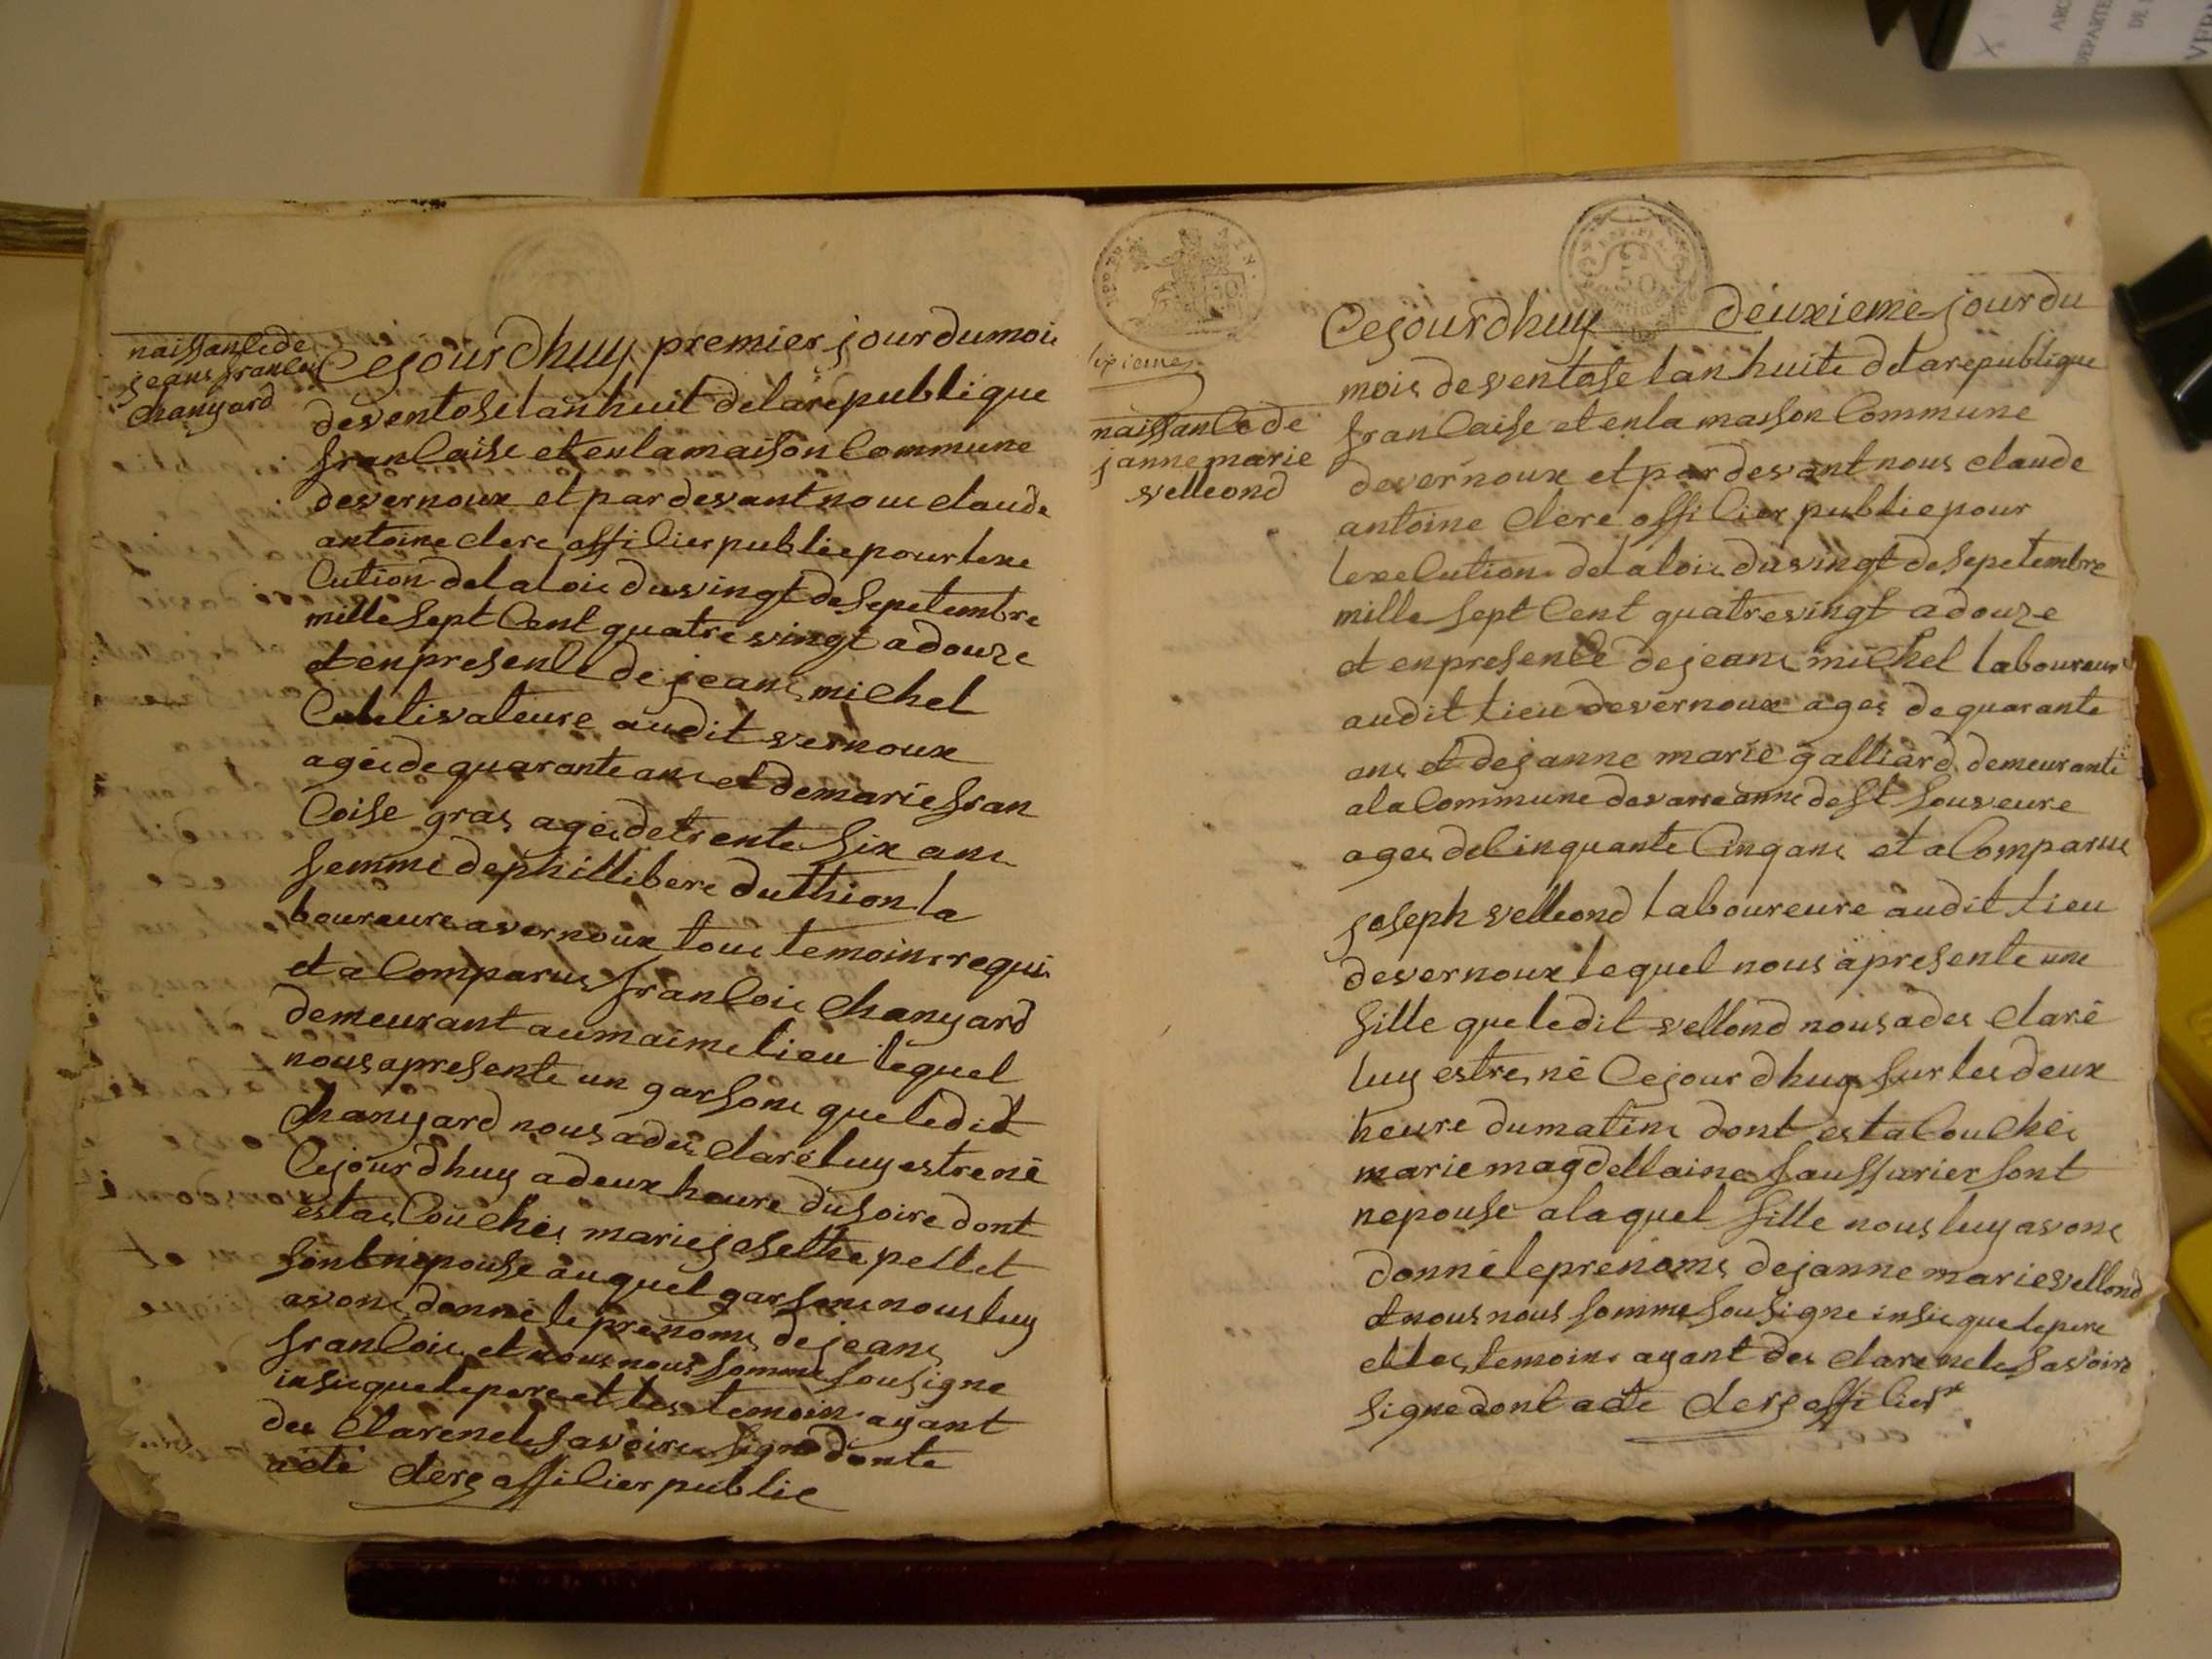 naissance de
jeans francois
chanyard
Cejourdhuy premier jour du moi
de ventose lan huit de la republique
francaise et en la maison commune
de vernoux et par devant nous claude
antoine clerc officier public pour lexe
cution de la lois du vingt de sepetembre
mille sept cent quatre vingt a douze
et en presence de jeans michel
culetivateure audit vernoux
agés de quarante ans et de marie fran
coise gras agés de trente six ans
femme de phillibere duthion la
boureure a vernoux tous temoins requis
et a comparus francois chanyard
demeurant au maime lieu lequel
nous a presente un garsons que ledit
chanyard nous a des claré luy estre né
Cejourdhuy a deux heure du soire dont
est as couchés marie josethe pellet
sont nepouse au quel garsons nous luy
avons donné le prenoms de jeans
francois et nous nous somme sousigne
insis que le pere et les temoins ayant
des clare ne le savoire signé donte
acte clerc officier public
ARC
DEPARTE
DE L
VERN
REP. FRA.
50
septiemes
naissance de
janne marie
velleond
Cejourdhuy deuxieme jour du
mois de ventose lan huite de la republique
francaise et en la maison commune
de vernoux et par devant nous claude
antoine clerc officier public pour
lexecution de la lois du vingt de sepetembre
mille sept cent quatre vingt a douze
et en presence de jeans michel laboureur
audit lieu de vernoux ages de quarante
ans et de janne marie galliard demeurante
a la commune de varreanne de St souveure
ages de cinquante cinq ans et a comparus
joseph velleond laboureure audit lieu
de vernoux lequel nous a presente une
fille que ledit vellond nous a des claré
luy estre né Cejourdhuy sur les deux
heure du matins dont est a couchés
marie magdellaine saussurier sont
nepouse a laquel fille nous luy avons
donné le prenoms de janne marie vellond
et nous nous somme sousigne insis que le pere
et les temoins ayant des clare ne le savoire
signe dont acte clerc officier